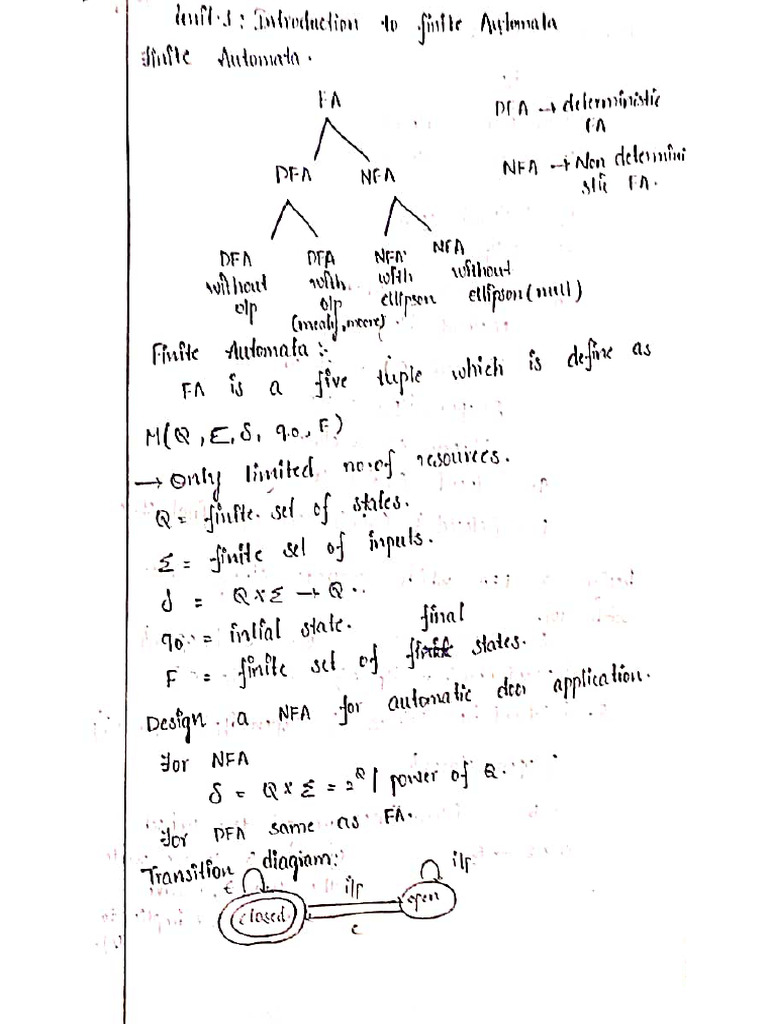 Unit-1: Introduction to finite Automata
Finite Automata.
FA
DFA → deterministic
FA
DFA NFA
NFA → Non determini
stic FA.
DFA without o/p
DFA with o/p (mealy, moore).
NFA with ellipson
NFA without ellipson (null)
Finite Automata :-
FA is a five tuple which is define as
M(Q, Σ, δ, q0, F)
→ Only limited no.of. resources.
Q = finite set of states.
Σ = finite set of inputs.
δ = Q x Σ → Q.
q0 = initial state.
F = finite set of final states.
Design a NFA for automatic door application.
For NFA
δ = Q x Σ = 2^Q / power of Q.
For DFA same as FA.
Transition diagram:
ε i/p i/p
closed open
ε